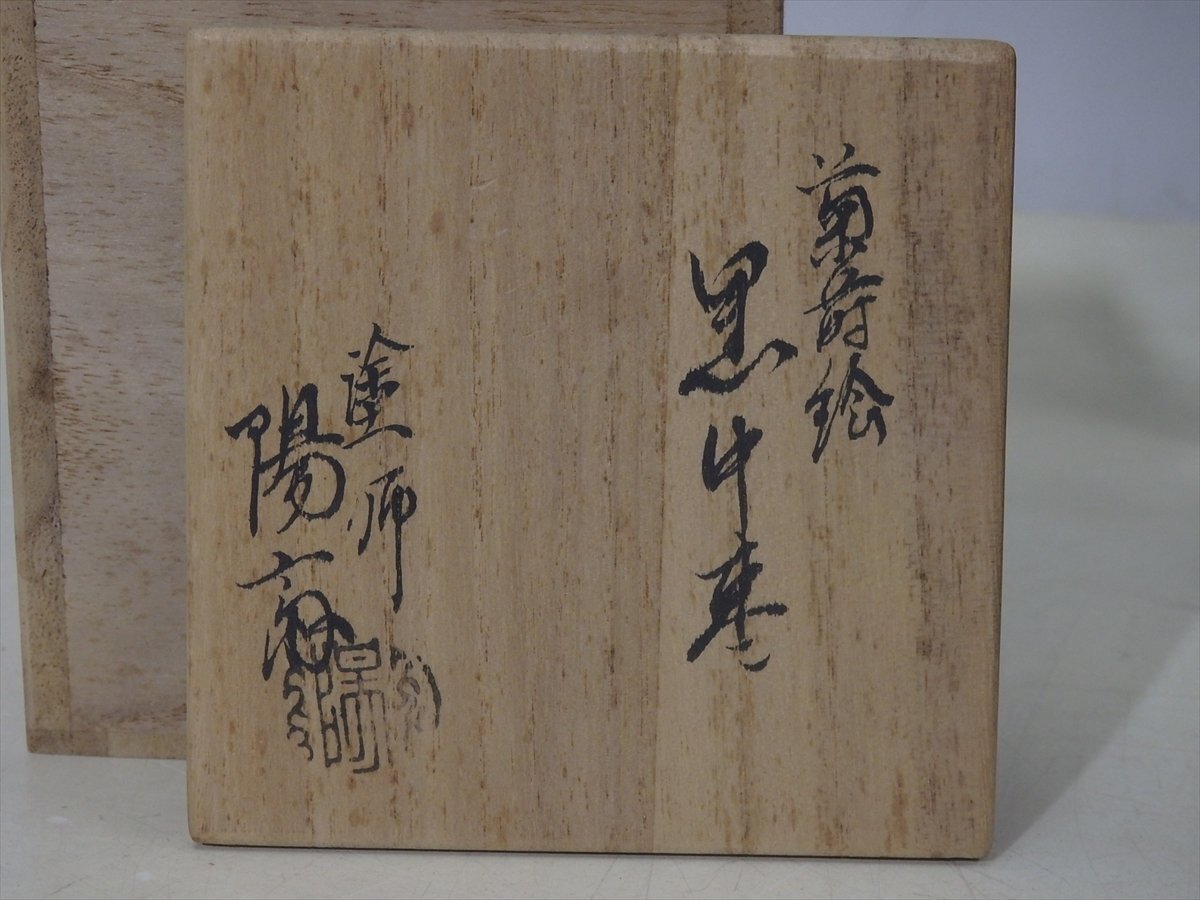 菊蒔絵
黒中棗
塗師
陽斎